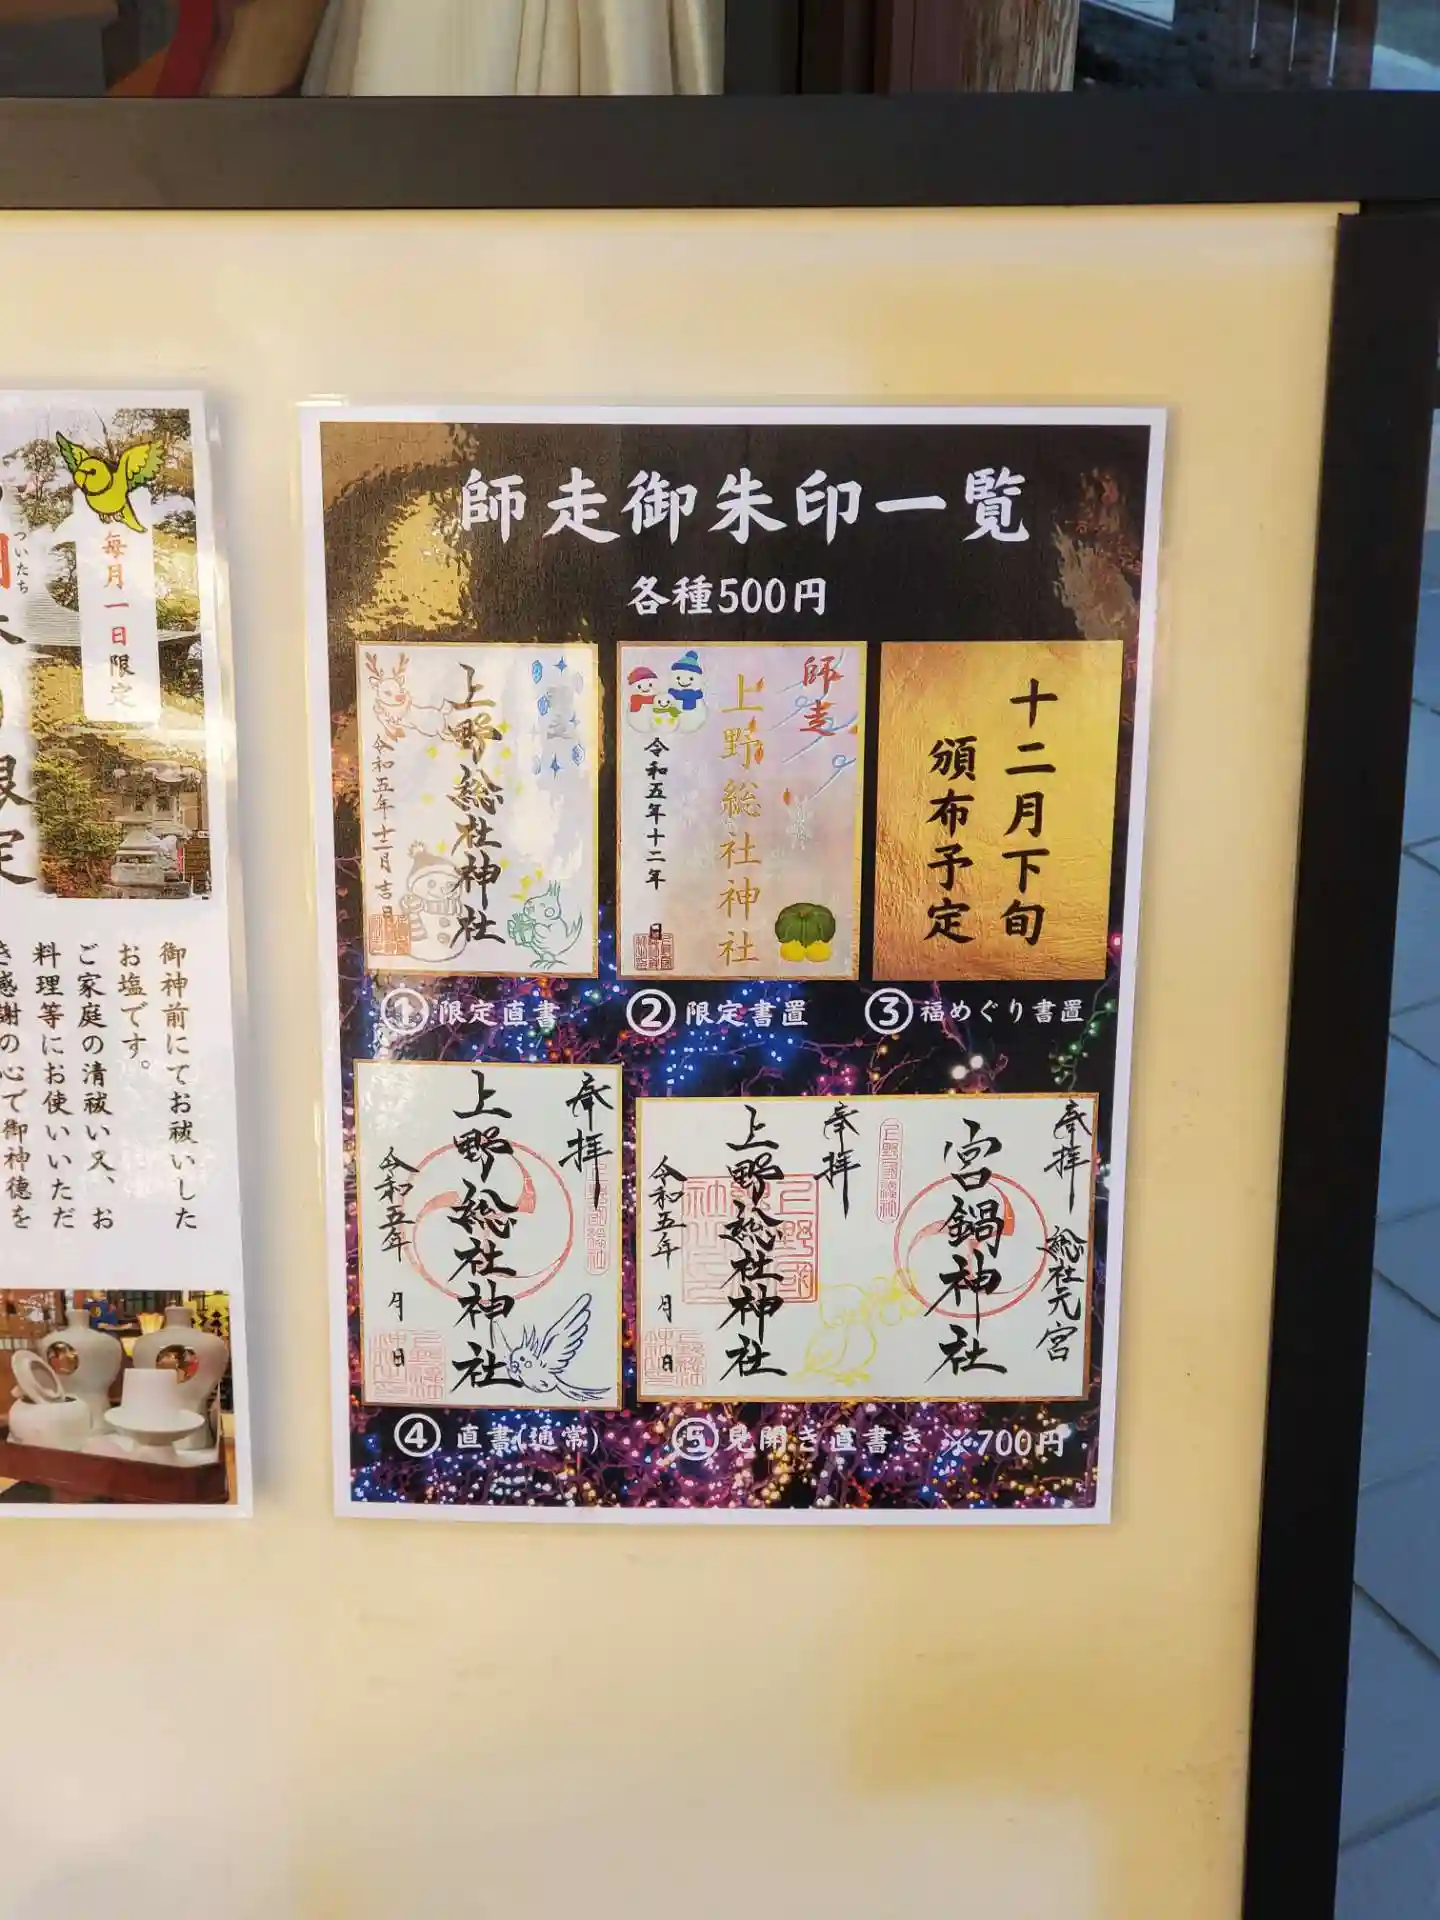 師走御朱印一覧
各種500円
上野総社神社
令和五年十二月吉日
師走
上野総社神社
令和五年十二年
日
十二月下旬
頒布予定
①限定直書
②限定書置
③福めぐり書置
奉拝
上野総社神社
令和五年 月 日
奉拝
総社元宮
宮鍋神社
奉拝
上野総社神社
令和五年 月 日
④直書(通常)
⑤見開き直書き ※700円
毎月一日限定
ついたち
御神前にてお祓いした
お塩です。
ご家庭の清祓い又、お
料理等にお使いいただ
き感謝の心で御神徳を